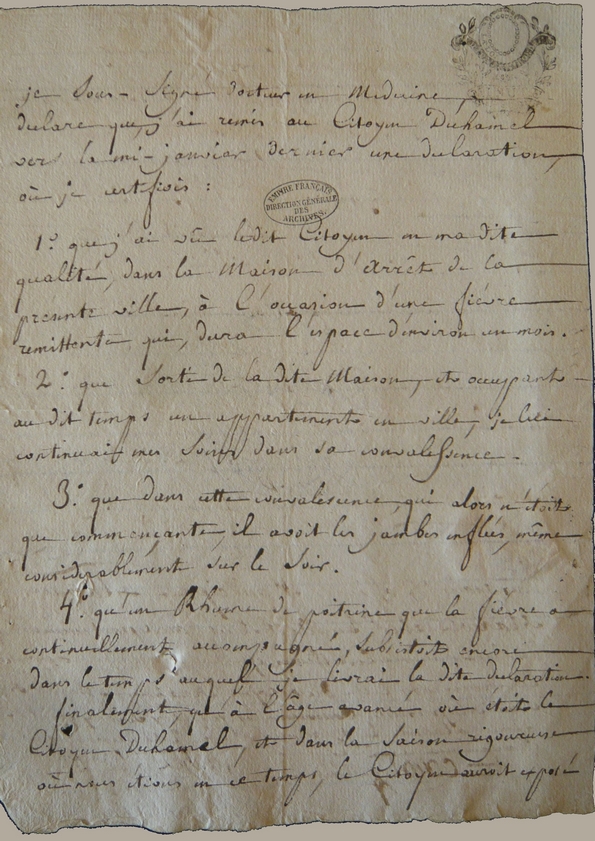 je sous-signé docteur en Medecine,
declare que j'ai remis au Citoyen Duhamel
vers la mi-janvier dernier une declaration,
où je certifiois :
EMPIRE FRANÇAIS
DIRECTION GÉNÉRALE
DES
ARCHIVES
1.° que j'ai vû ledit Citoyen en ma dite
qualité, dans la Maison d'Arrêt de la
presente ville, à l'occasion d'une fièvre
remittente qui, dura l'espace d'environ un mois.
2.° que sorti de la dite Maison, et occupant
au dit temps un appartement en ville, je lui
continuai mes soins dans sa convalessence.
3.° que dans cette convalescence, qui alors n'étoit
que commençante, il avoit les jambes enflées, même
considerablement sur le soir.
4.° qu'un Rhume de poitrine que la fièvre a
continuellement accompagné, subsistoit encore
dans le temps auquel je livrai la dite declaration.
finalement, que à l'âge avancé où étoit le
Citoyen Duhamel, et dans la saison rigoureuse
où nous etions en ce temps, le Citoyen auroit exposé